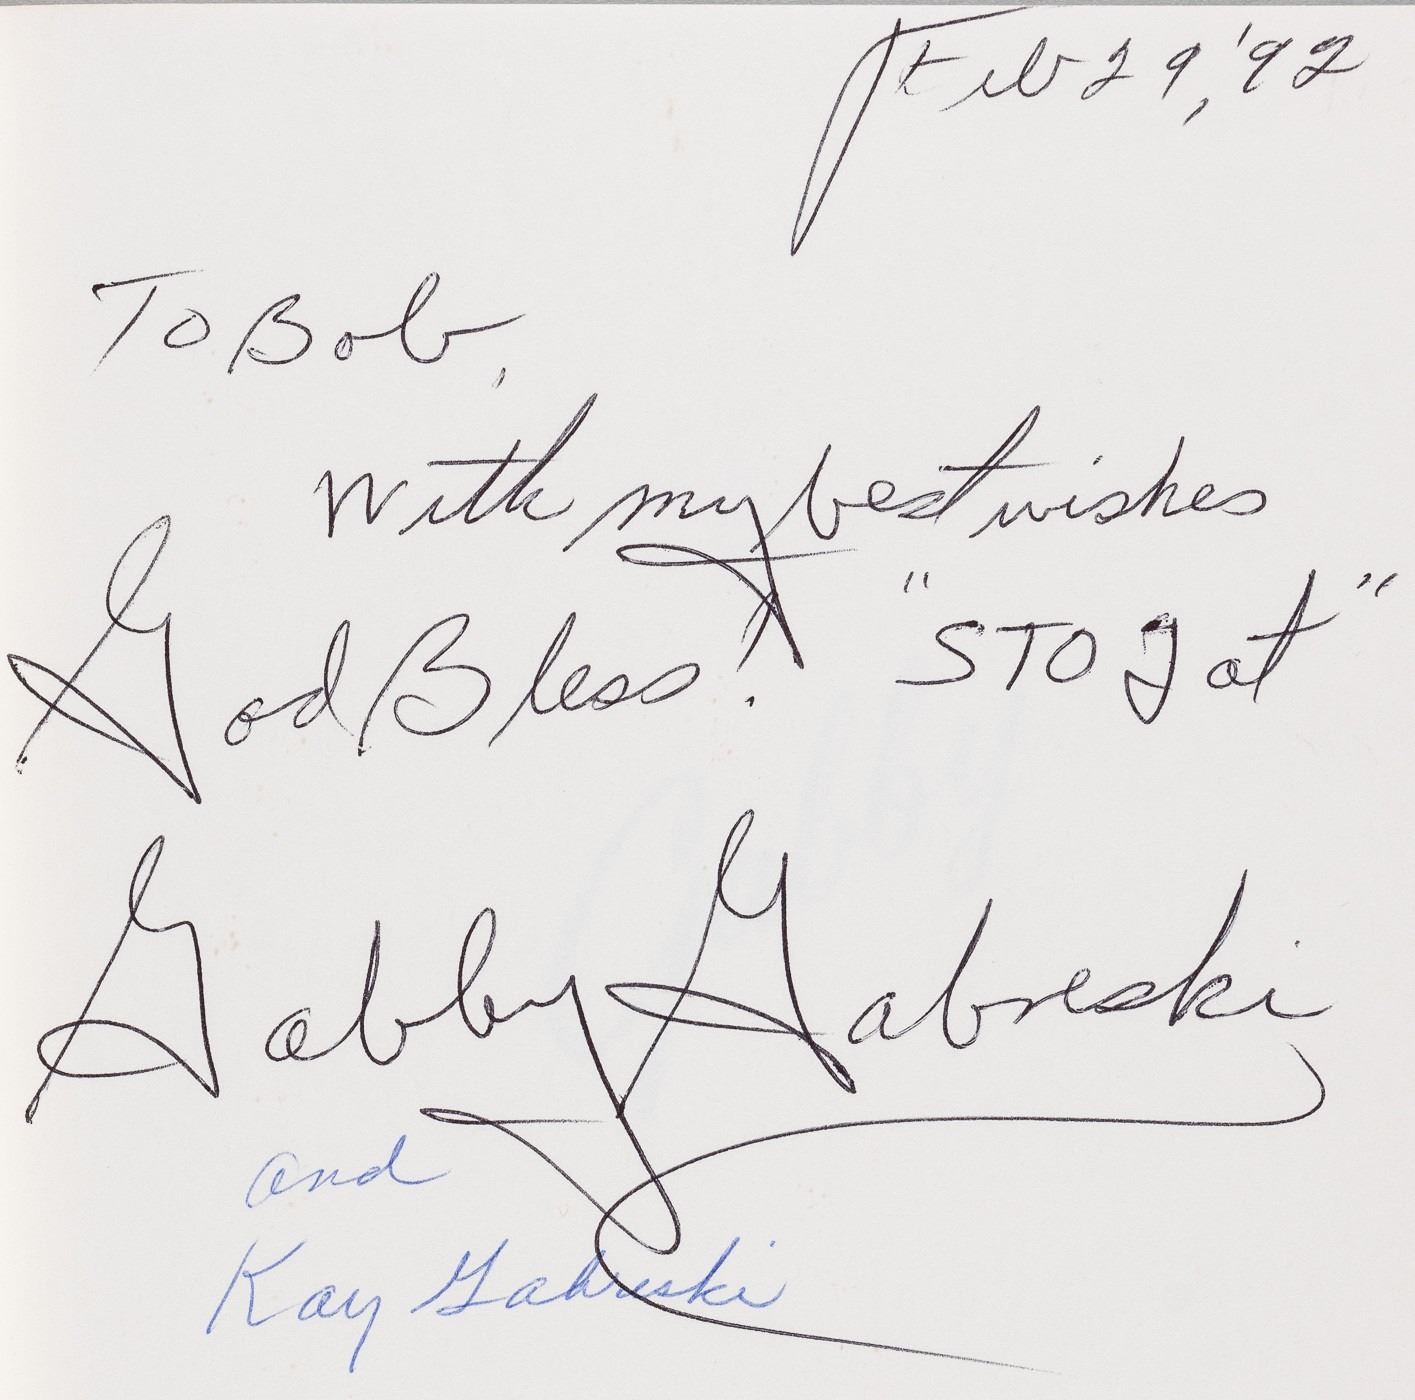 Feb 29, '92
To Bob,
With my best wishes
God Bless! "STO Lat"
Gabby Gabreski
and
Kay Gabreski